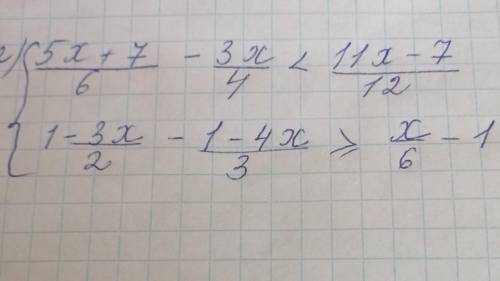 г) { (5x + 7)/6 - 3x/4 < (11x - 7)/12
{ (1 - 3x)/2 - (1 - 4x)/3 ⩾ x/6 - 1